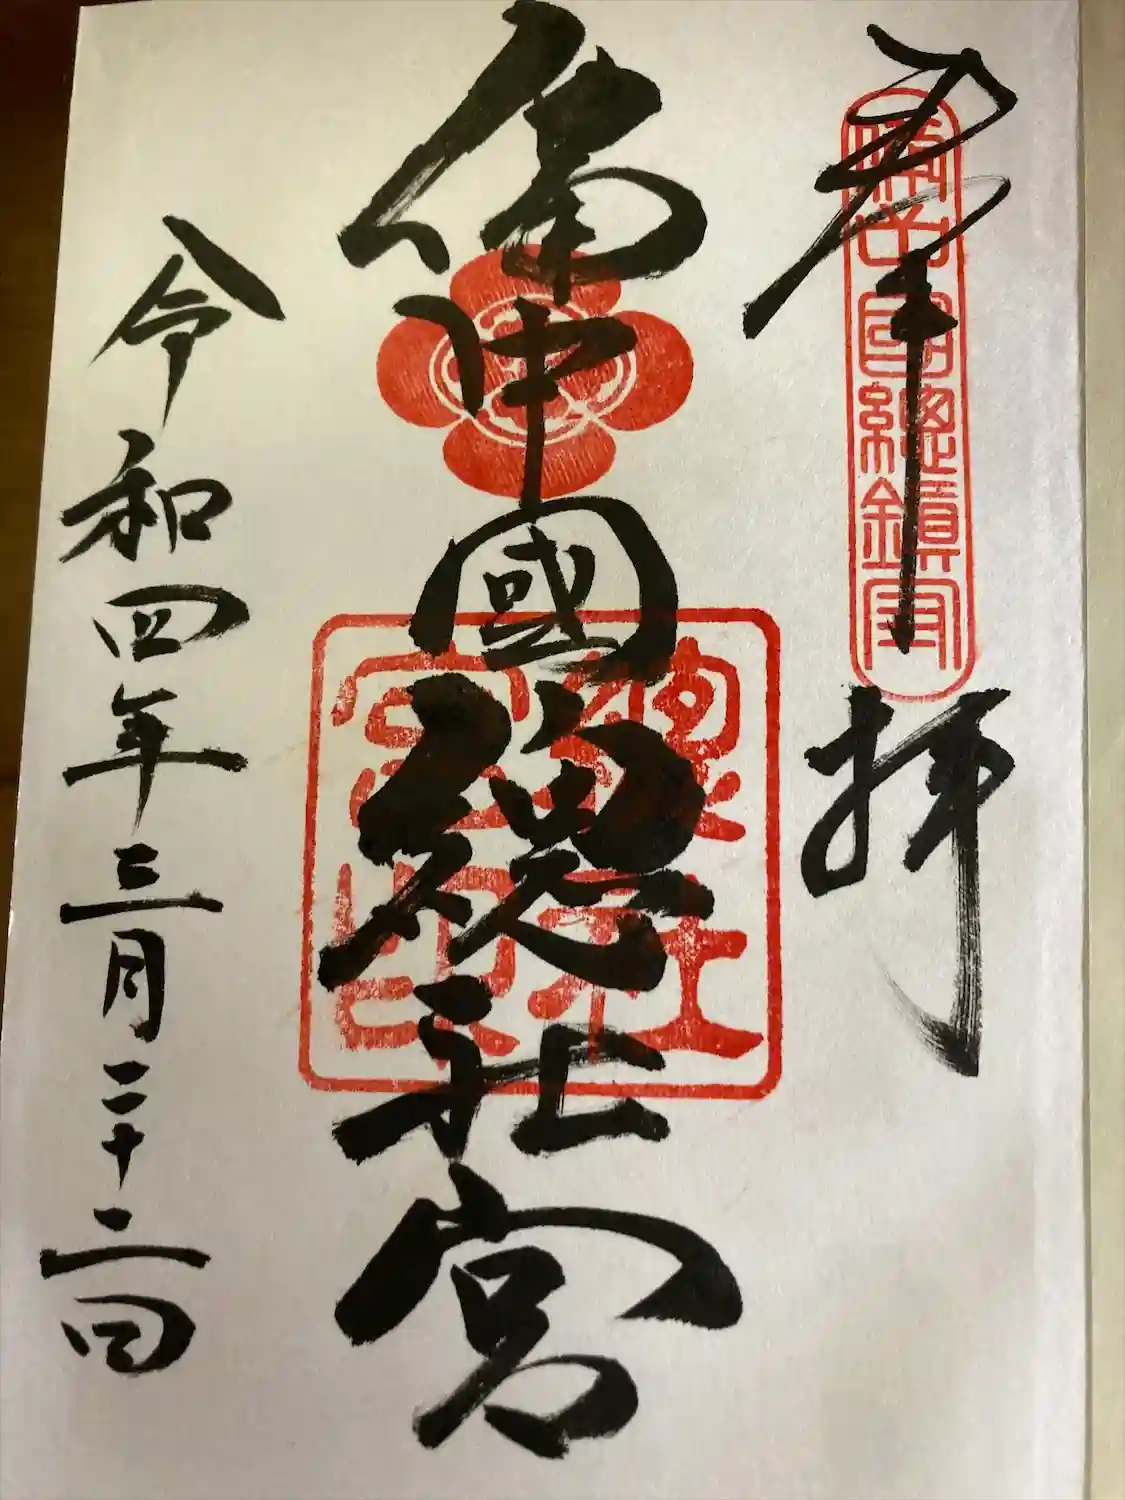 奉拝
備中國総鎮守
備中國總社宮
總社宮印
令和四年三月二十二日